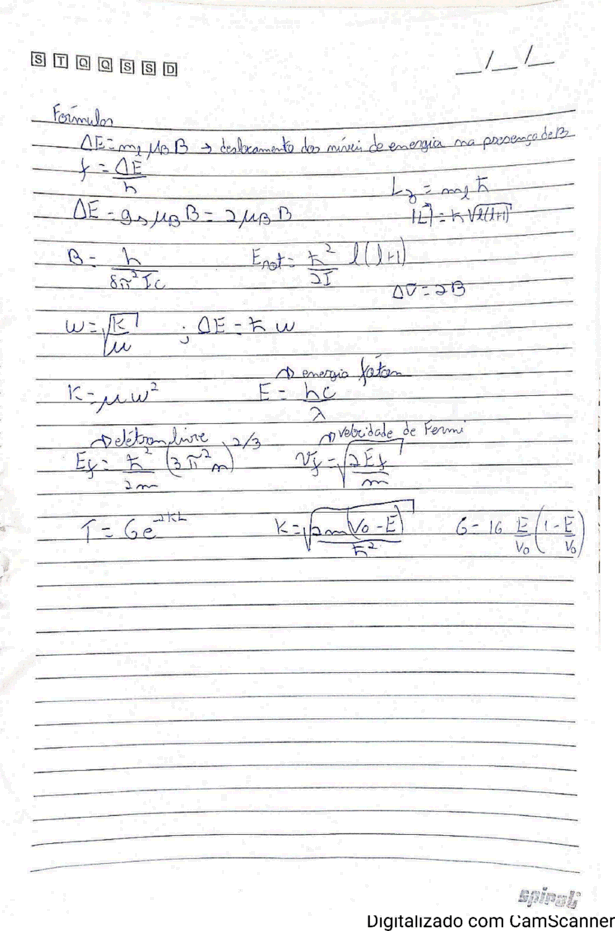 S T Q Q S S D
__/__/__
Fórmulas
ΔE = m_l μ_B B → deslocamento dos níveis de energia na presença de B
f = ΔE/h
L_z = m_l ħ
ΔE = g_s μ_B B = 2μ_B B
|L⃗| = ħ √(l(l+1))
B = h/(8π² I c)    E_rot = ħ²/(2I) l(l+1)
Δν̄ = 2B
w = √(K/μ) ; ΔE = ħ w
→ energia fóton
K = μ w²    E = hc/λ
→ elétron livre    → velocidade de Fermi
E_f = ħ²/(2m) (3π² n)^(2/3)    V_f = √(2E_f/m)
T = G e^(-2KL)    K = √(2m(V₀ - E)/ħ²)    G = 16 E/V₀ (1 - E/V₀)
spiral
Digitalizado com CamScanner